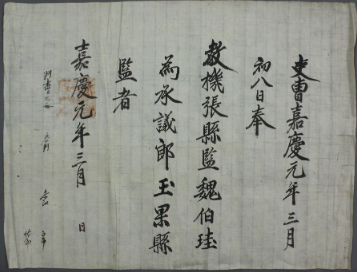 吏曹嘉慶元年三月
初八日奉
教機張縣監魏伯珪
為承議郎玉果縣
監者
嘉慶元年三月 日